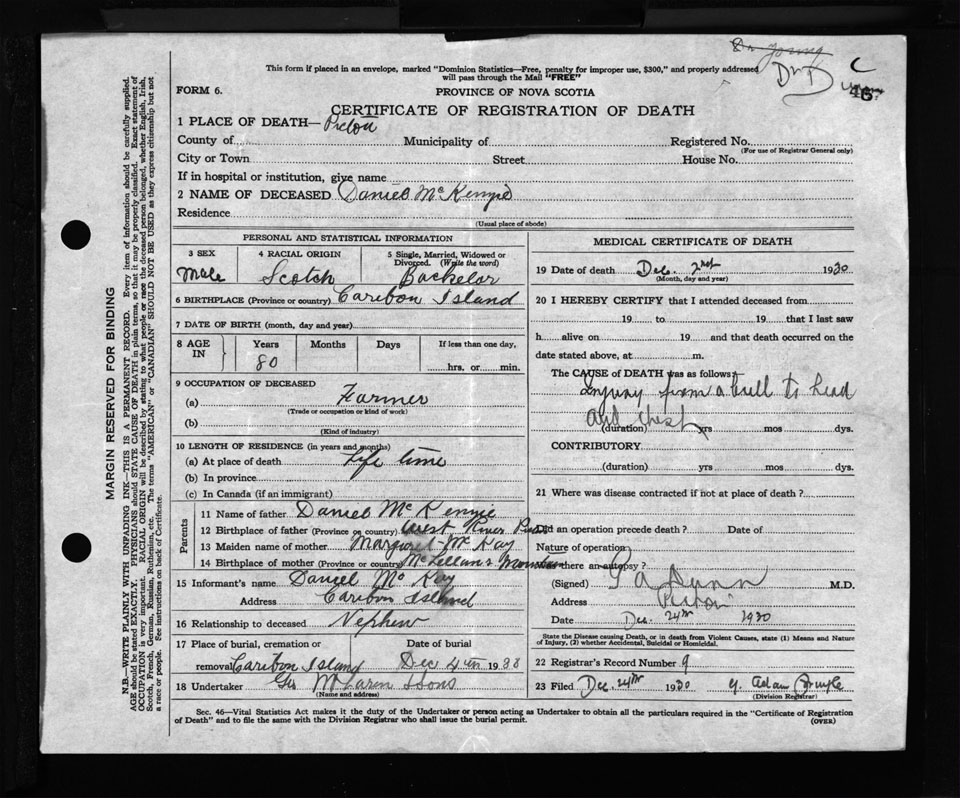 Dr Young
Dr Dunn C
46
This form if placed in an envelope, marked "Dominion Statistics—Free, penalty for improper use, $300," and properly addressed
will pass through the Mail "FREE"
FORM 6.
PROVINCE OF NOVA SCOTIA
CERTIFICATE OF REGISTRATION OF DEATH
1 PLACE OF DEATH— Pictou
County of Municipality of Registered No.
(For use of Registrar General only)
City or Town Street House No.
If in hospital or institution, give name
2 NAME OF DECEASED Daniel McKenzie
Residence
(Usual place of abode)
PERSONAL AND STATISTICAL INFORMATION
3 SEX 4 RACIAL ORIGIN 5 Single, Married, Widowed or Divorced. (Write the word)
Male Scotch Bachelor
6 BIRTHPLACE (Province or country) Caribou Island
7 DATE OF BIRTH (month, day and year)
8 AGE IN Years Months Days If less than one day,
80 hrs. or min.
9 OCCUPATION OF DECEASED
(a) Farmer
(Trade or occupation or kind of work)
(b)
(Kind of industry)
10 LENGTH OF RESIDENCE (in years and months)
(a) At place of death Life time
(b) In province
(c) In Canada (if an immigrant)
Parents
11 Name of father Daniel McKenzie
12 Birthplace of father (Province or country) West River
13 Maiden name of mother Margaret McKay
14 Birthplace of mother (Province or country) McLellan's Mountain
15 Informant's name Daniel McKay
Address Caribou Island
16 Relationship to deceased Nephew
17 Place of burial, cremation or Date of burial
removal Caribou Island Dec 4th 1930
18 Undertaker Geo McLaren & Sons
(Name and address)
MEDICAL CERTIFICATE OF DEATH
19 Date of death Dec. 2nd 1930
(Month, day and year)
20 I HEREBY CERTIFY that I attended deceased from
19 to 19 that I last saw
h alive on 19 and that death occurred on the
date stated above, at m.
The CAUSE OF DEATH was as follows:
Injury from a bull to head
and chest
(duration) yrs mos dys.
CONTRIBUTORY.
(duration) yrs mos dys.
21 Where was disease contracted if not at place of death?
Did an operation precede death? Date of
Nature of operation
Was there an autopsy?
(Signed) S A Dunn M.D.
Address Pictou
Date Dec. 24th 1930
State the Disease causing Death, or in death from Violent Causes, state (1) Means and Nature
of Injury, (2) whether Accidental, Suicidal or Homicidal.
22 Registrar's Record Number 9
23 Filed Dec. 24th 1930
(Division Registrar)
Sec. 46—Vital Statistics Act makes it the duty of the Undertaker or person acting as Undertaker to obtain all the particulars required in the "Certificate of Registration
of Death" and to file the same with the Division Registrar who shall issue the burial permit.
(OVER)
MARGIN RESERVED FOR BINDING
N.B.—WRITE PLAINLY WITH UNFADING INK—THIS IS A PERMANENT RECORD. Every item of information should be carefully supplied.
AGE should be stated EXACTLY. PHYSICIANS should STATE CAUSE OF DEATH in plain terms, so that it may be properly classified. Exact statement of
OCCUPATION is very important. RACIAL ORIGIN will be described by stating to what people or race the deceased person belonged, whether English, Irish,
Scotch, French, German, Russian, Ruthenian, etc. The terms "AMERICAN" or "CANADIAN" SHOULD NOT BE USED as they express citizenship but not
a race or people. See instructions on back of Certificate.